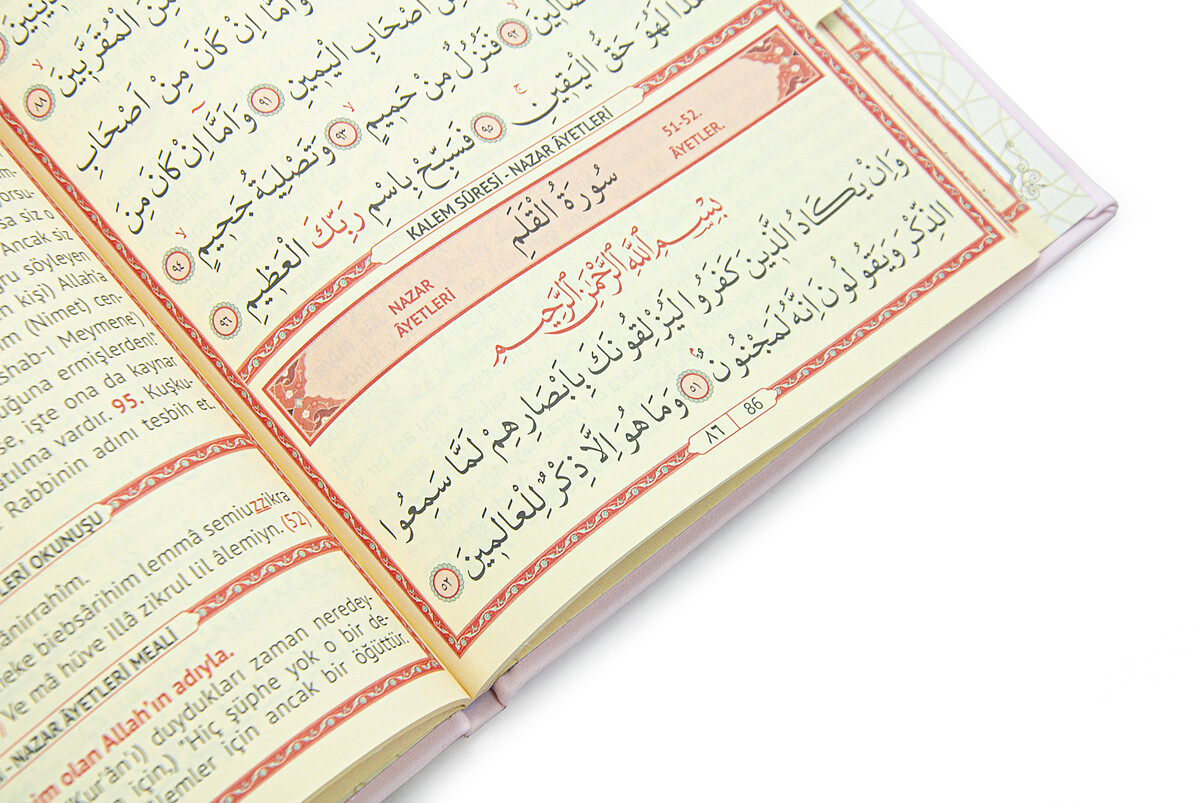 وَاَمَّٓا اِنْ كَانَ مِنَ الْمُقَرَّبٖينَ ﴿٨٨﴾
اَصْحَابِ الْيَمٖينِ ﴿٩١﴾ وَاَمَّٓا اِنْ كَانَ مِنْ اَصْحَابِ
﴿٩٢﴾ فَنُزُلٌ مِنْ حَمٖيمٍ ﴿٩٣﴾ وَتَصْلِيَةُ جَحٖيمٍ ﴿٩٤﴾
لَهُوَ حَقُّ الْيَقٖينِ ﴿٩٥﴾ فَسَبِّحْ بِاسْمِ رَبِّكَ الْعَظٖيمِ ﴿٩٦﴾
KALEM SÛRESİ - NAZAR ÂYETLERİ
NAZAR
ÂYETLERİ
سُورَةُ الْقَلَمِ
51-52.
ÂYETLER.
بِسْمِ اللّٰهِ الرَّحْمٰنِ الرَّحٖيمِ
وَاِنْ يَكَادُ الَّذٖينَ كَفَرُوا لَيُزْلِقُونَكَ بِاَبْصَارِهِمْ لَمَّا سَمِعُوا
الذِّكْرَ وَيَقُولُونَ اِنَّهُ لَمَجْنُونٌ ﴿٥١﴾ وَمَا هُوَ اِلَّا ذِكْرٌ لِلْعَالَمٖينَ ﴿٥٢﴾
٨٦ | 86
siz o
Ancak siz
söyleyen
kişi) Allah'a
(Nimet) cen-
shab-ı Meymene)
uğuna ermişlerden!
se, işte ona da kaynar
vardır. 95. Kuşku-
Rabbinin adını tesbih et.
OKUNUŞU
biebsârihim lemmâ semiuzzikra
Ve mâ hüve illâ zikrul lil âlemiyn. (52)
- NAZAR ÂYETLERİ MEALİ
olan Allah'ın adıyla.
(Kur'ân'ı) duydukları zaman neredey-
için,) "Hiç şüphe yok o bir de-
için ancak bir öğüttür.